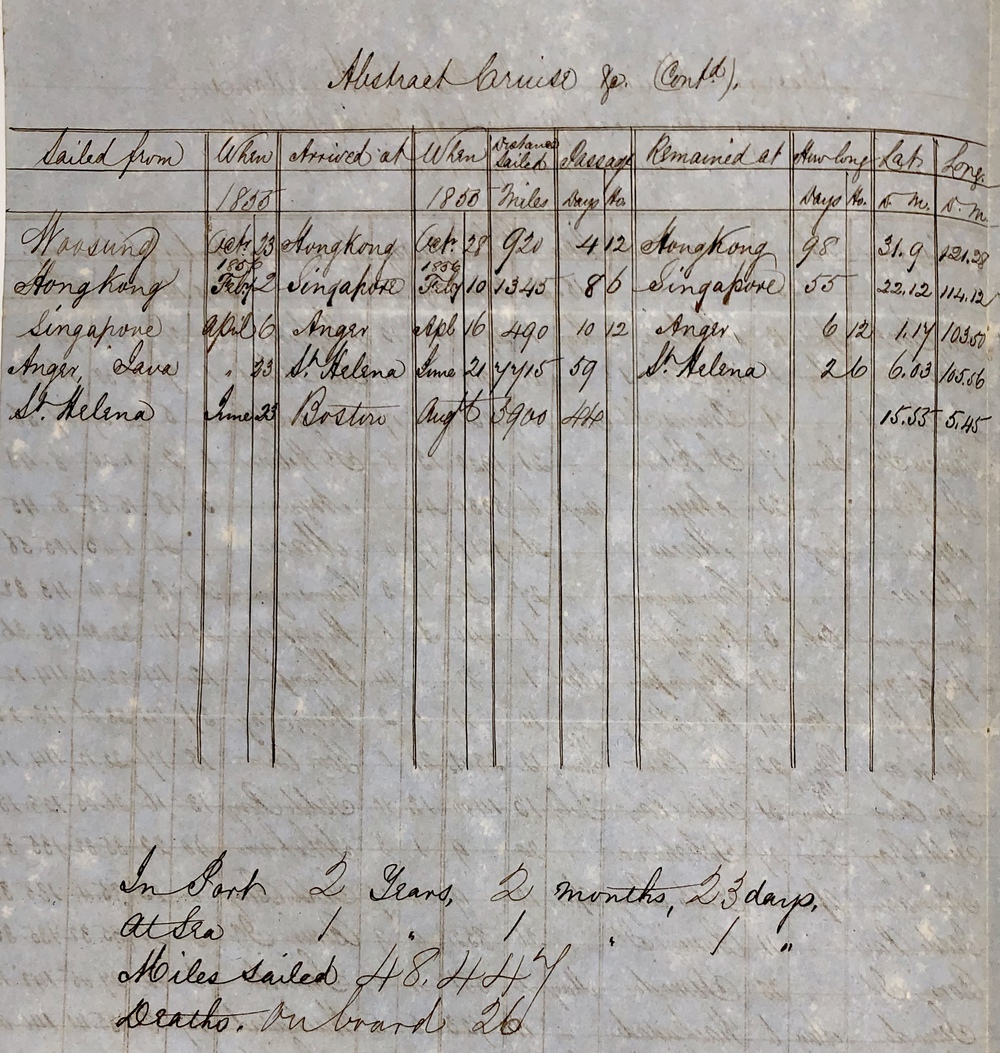 Abstract Cruise &c. (Contd).
Sailed from When Arrived at When Distance Sailed Passage Remained at How long Lat. Long.
1855 1855 Miles Days Ho. Days Ho. D. M. D. M.
Woosung Octr 23 HongKong Octr 28 920 4 12 HongKong 98 31.9 121.28
HongKong 1856 Feby 2 Singapore 1856 Feby 10 1345 8 6 Singapore 55 22.12 114.12
Singapore April 6 Anger Apl 16 490 10 12 Anger 6 12 1.17 103.50
Anger, Java " 23 St. Helena June 21 7715 59 St. Helena 2 6 6.03 105.56
St. Helena June 23 Boston Augt 6 3900 44 15.55 5.45
In Port 2 Years, 2 months, 23 days,
At Sea 1 " 1 " 1 "
Miles sailed 48.447
Deaths. on board 26